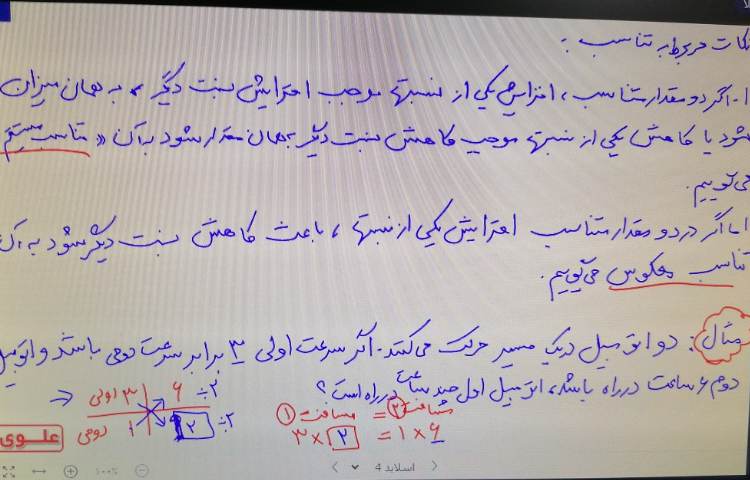 نکات مربوط به تناسب:
۱- اگر دو مقدار متناسب، افزایش یکی از نسبتها موجب افزایش نسبت دیگر، به همان میزان
شود یا کاهش یکی از نسبتها موجب کاهش نسبت دیگر به همان مقدار شود به آن «تناسب مستقیم
می‌گوییم.
اما اگر در دو مقدار متناسب افزایش یکی از نسبتها، باعث کاهش نسبت دیگر شود به آن
تناسب معکوس می‌گوییم.
مثال: دو اتومبیل در یک مسیر حرکت می‌کنند. اگر سرعت اولی ۳ برابر سرعت دومی باشد و اتومبیل
دوم ۶ ساعت در راه باشد، اتومبیل اول چند ساعت در راه است؟
اولی ۳ ۶ ÷۲
دومی ۱ ۲ ÷۲
مسافت ۱ = مسافت ۲
۳ × ۲ = ۱ × ۶
علوی
اسلاید 4
۱۰۰%